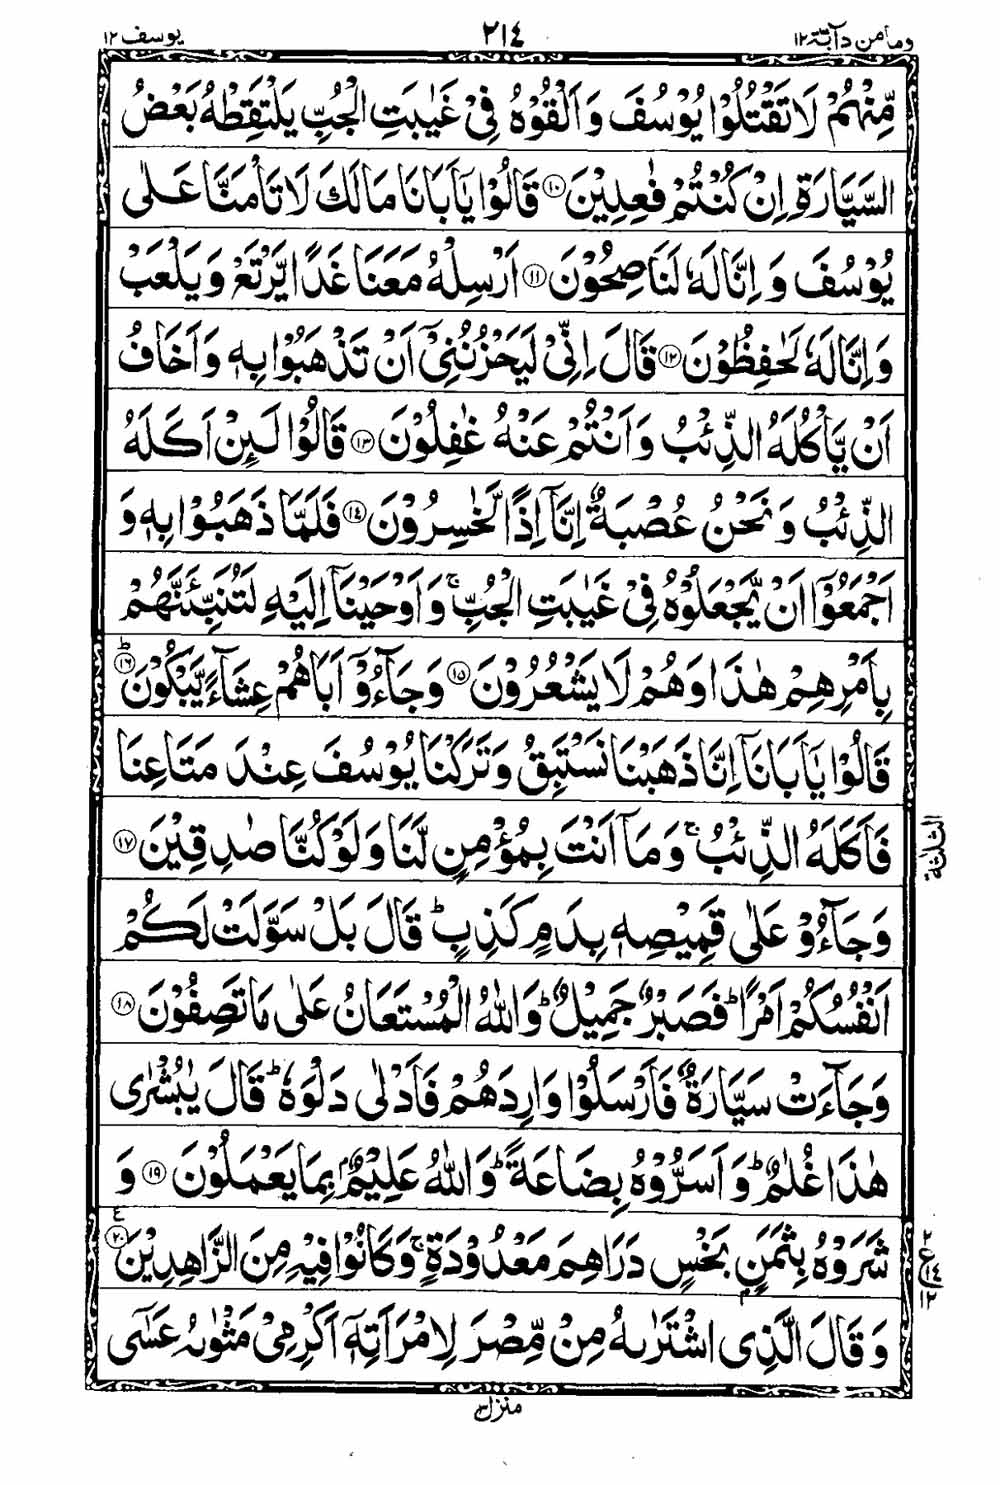 وما من دآبة ١٢ ٢١٤ يوسف ١٢
مِّنْهُمْ لَا تَقْتُلُوْا يُوْسُفَ وَاَلْقُوْهُ فِيْ غَيٰبَتِ الْجُبِّ يَلْتَقِطْهُ بَعْضُ
السَّيَّارَةِ اِنْ كُنْتُمْ فٰعِلِيْنَ ۝١٠ قَالُوْا يٰٓاَبَانَا مَالَكَ لَا تَاْمَنَّا عَلٰى
يُوْسُفَ وَاِنَّا لَهٗ لَنَاصِحُوْنَ ۝١١ اَرْسِلْهُ مَعَنَا غَدًا يَّرْتَعْ وَيَلْعَبْ
وَاِنَّا لَهٗ لَحٰفِظُوْنَ ۝١٢ قَالَ اِنِّيْ لَيَحْزُنُنِيْٓ اَنْ تَذْهَبُوْا بِهٖ وَاَخَافُ
اَنْ يَّاْكُلَهُ الذِّئْبُ وَاَنْتُمْ عَنْهُ غٰفِلُوْنَ ۝١٣ قَالُوْا لَىِٕنْ اَكَلَهُ
الذِّئْبُ وَنَحْنُ عُصْبَةٌ اِنَّآ اِذًا لَّخٰسِرُوْنَ ۝١٤ فَلَمَّا ذَهَبُوْا بِهٖ وَ
اَجْمَعُوْٓا اَنْ يَّجْعَلُوْهُ فِيْ غَيٰبَتِ الْجُبِّ ۚ وَاَوْحَيْنَآ اِلَيْهِ لَتُنَبِّئَنَّهُمْ
بِاَمْرِهِمْ هٰذَا وَهُمْ لَا يَشْعُرُوْنَ ۝١٥ وَجَآءُوْٓ اَبَاهُمْ عِشَآءً يَّبْكُوْنَ ۝١٦ؕ
قَالُوْا يٰٓاَبَانَآ اِنَّا ذَهَبْنَا نَسْتَبِقُ وَتَرَكْنَا يُوْسُفَ عِنْدَ مَتَاعِنَا
فَاَكَلَهُ الذِّئْبُ ۚ وَمَآ اَنْتَ بِمُؤْمِنٍ لَّنَا وَلَوْ كُنَّا صٰدِقِيْنَ ۝١٧
الثلثة
وَجَآءُوْ عَلٰى قَمِيْصِهٖ بِدَمٍ كَذِبٍ ؕ قَالَ بَلْ سَوَّلَتْ لَكُمْ
اَنْفُسُكُمْ اَمْرًا ؕ فَصَبْرٌ جَمِيْلٌ ؕ وَاللّٰهُ الْمُسْتَعَانُ عَلٰى مَا تَصِفُوْنَ ۝١٨
وَجَآءَتْ سَيَّارَةٌ فَاَرْسَلُوْا وَارِدَهُمْ فَاَدْلٰى دَلْوَهٗ ؕ قَالَ يٰبُشْرٰى
هٰذَا غُلٰمٌ ؕ وَاَسَرُّوْهُ بِضَاعَةً ؕ وَاللّٰهُ عَلِيْمٌۢ بِمَا يَعْمَلُوْنَ ۝١٩ وَ
شَرَوْهُ بِثَمَنٍۢ بَخْسٍ دَرَاهِمَ مَعْدُوْدَةٍ ۚ وَكَانُوْا فِيْهِ مِنَ الزَّاهِدِيْنَ ۝٢٠ ع
٢ ع ١٤ ١٢
وَقَالَ الَّذِي اشْتَرٰىهُ مِنْ مِّصْرَ لِامْرَاَتِهٖٓ اَكْرِمِيْ مَثْوٰىهُ عَسٰٓى
منزل ٣